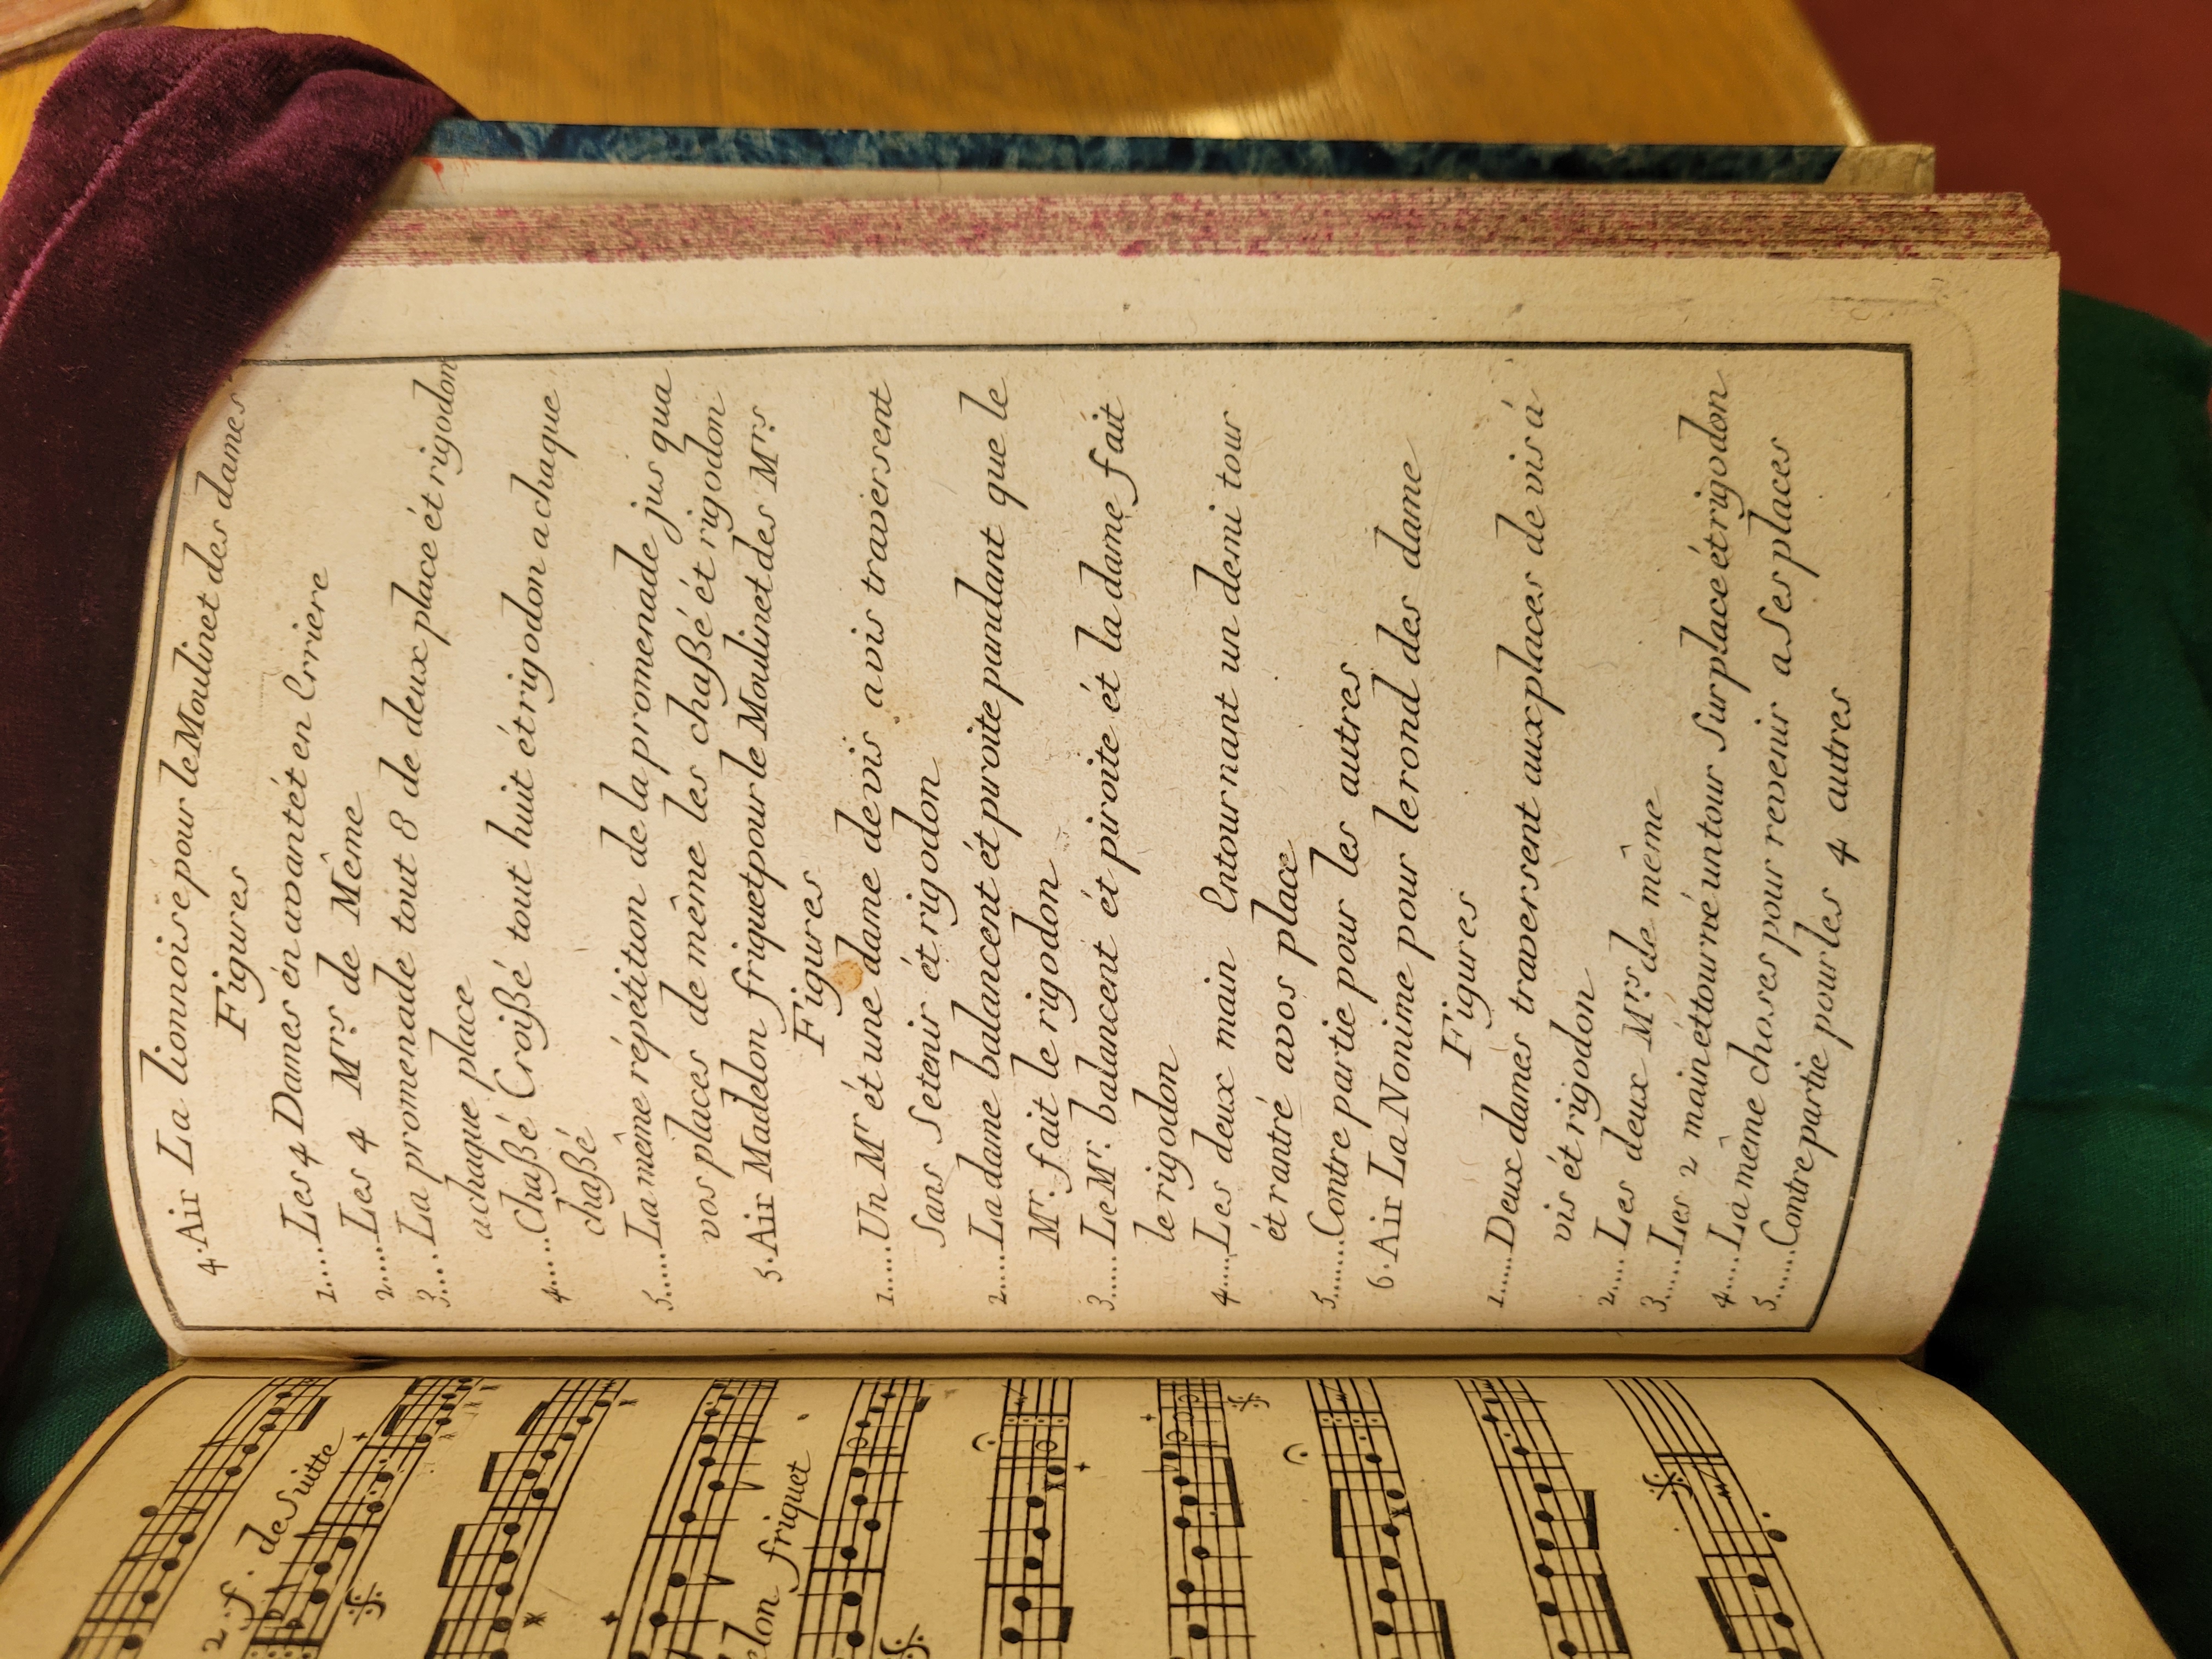 2.f. de Suitte
elon friquet
4. Air La lionnoise pour le Moulinet des dames
Figures
1....Les 4 Dames én avantét en Erriere
2....Les 4 Mrs de Même
3....La promenade tout 8 de deux place ét rigodon
achaque place
4....Chaßé Croißé tout huit ét rigodon a chaque
chaßé
5....La même répétition de la promenade jus qua
vos places de même les chaßé ét rigodon
5. Air Madelon friquet pour le Moulinet des Mrs
Figures
1....Un Mr ét une dame de vis a vis traversent
Sans Se tenir ét rigodon
2....La dame balancent ét piroite pandant que le
Mr. fait le rigodon
3....Le Mr. balancent ét piroite ét la dame fait
le rigodon
4....Les deux main Entournant un demi tour
ét rantré avos place
5.....Contre partie pour les autres
6. Air La Nonime pour le rond des dame
Figures
1.....Deux dames traversent aux places de vis á
vis ét rigodon
2.....Les deux Mrs de même
3.....Les 2 main ét tourné un tour Sur place ét rigodon
4.....La même choses pour revenir a Ses places
5.....Contre partie pour les 4 autres